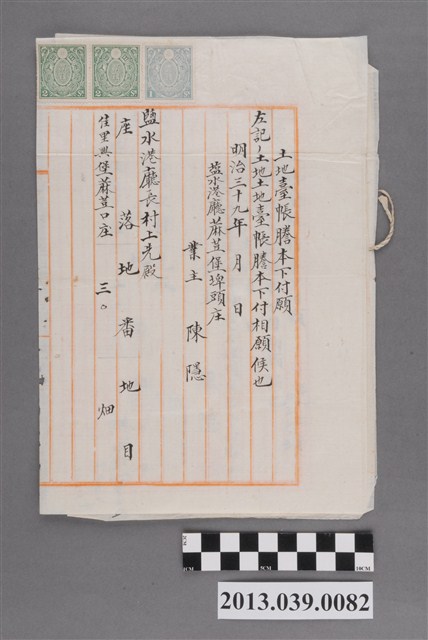 土地臺帳謄本下付願
左記ノ土地土地臺帳謄本下付相願候也
明治三十九年 月 日
鹽水港廳蔴荳堡埤頭庄
業主 陳隱
鹽水港廳長村上先殿
座落地番地目
佳里興堡蔴荳口庄 三〇 畑
1CM 5CM 10CM
2013.039.0082